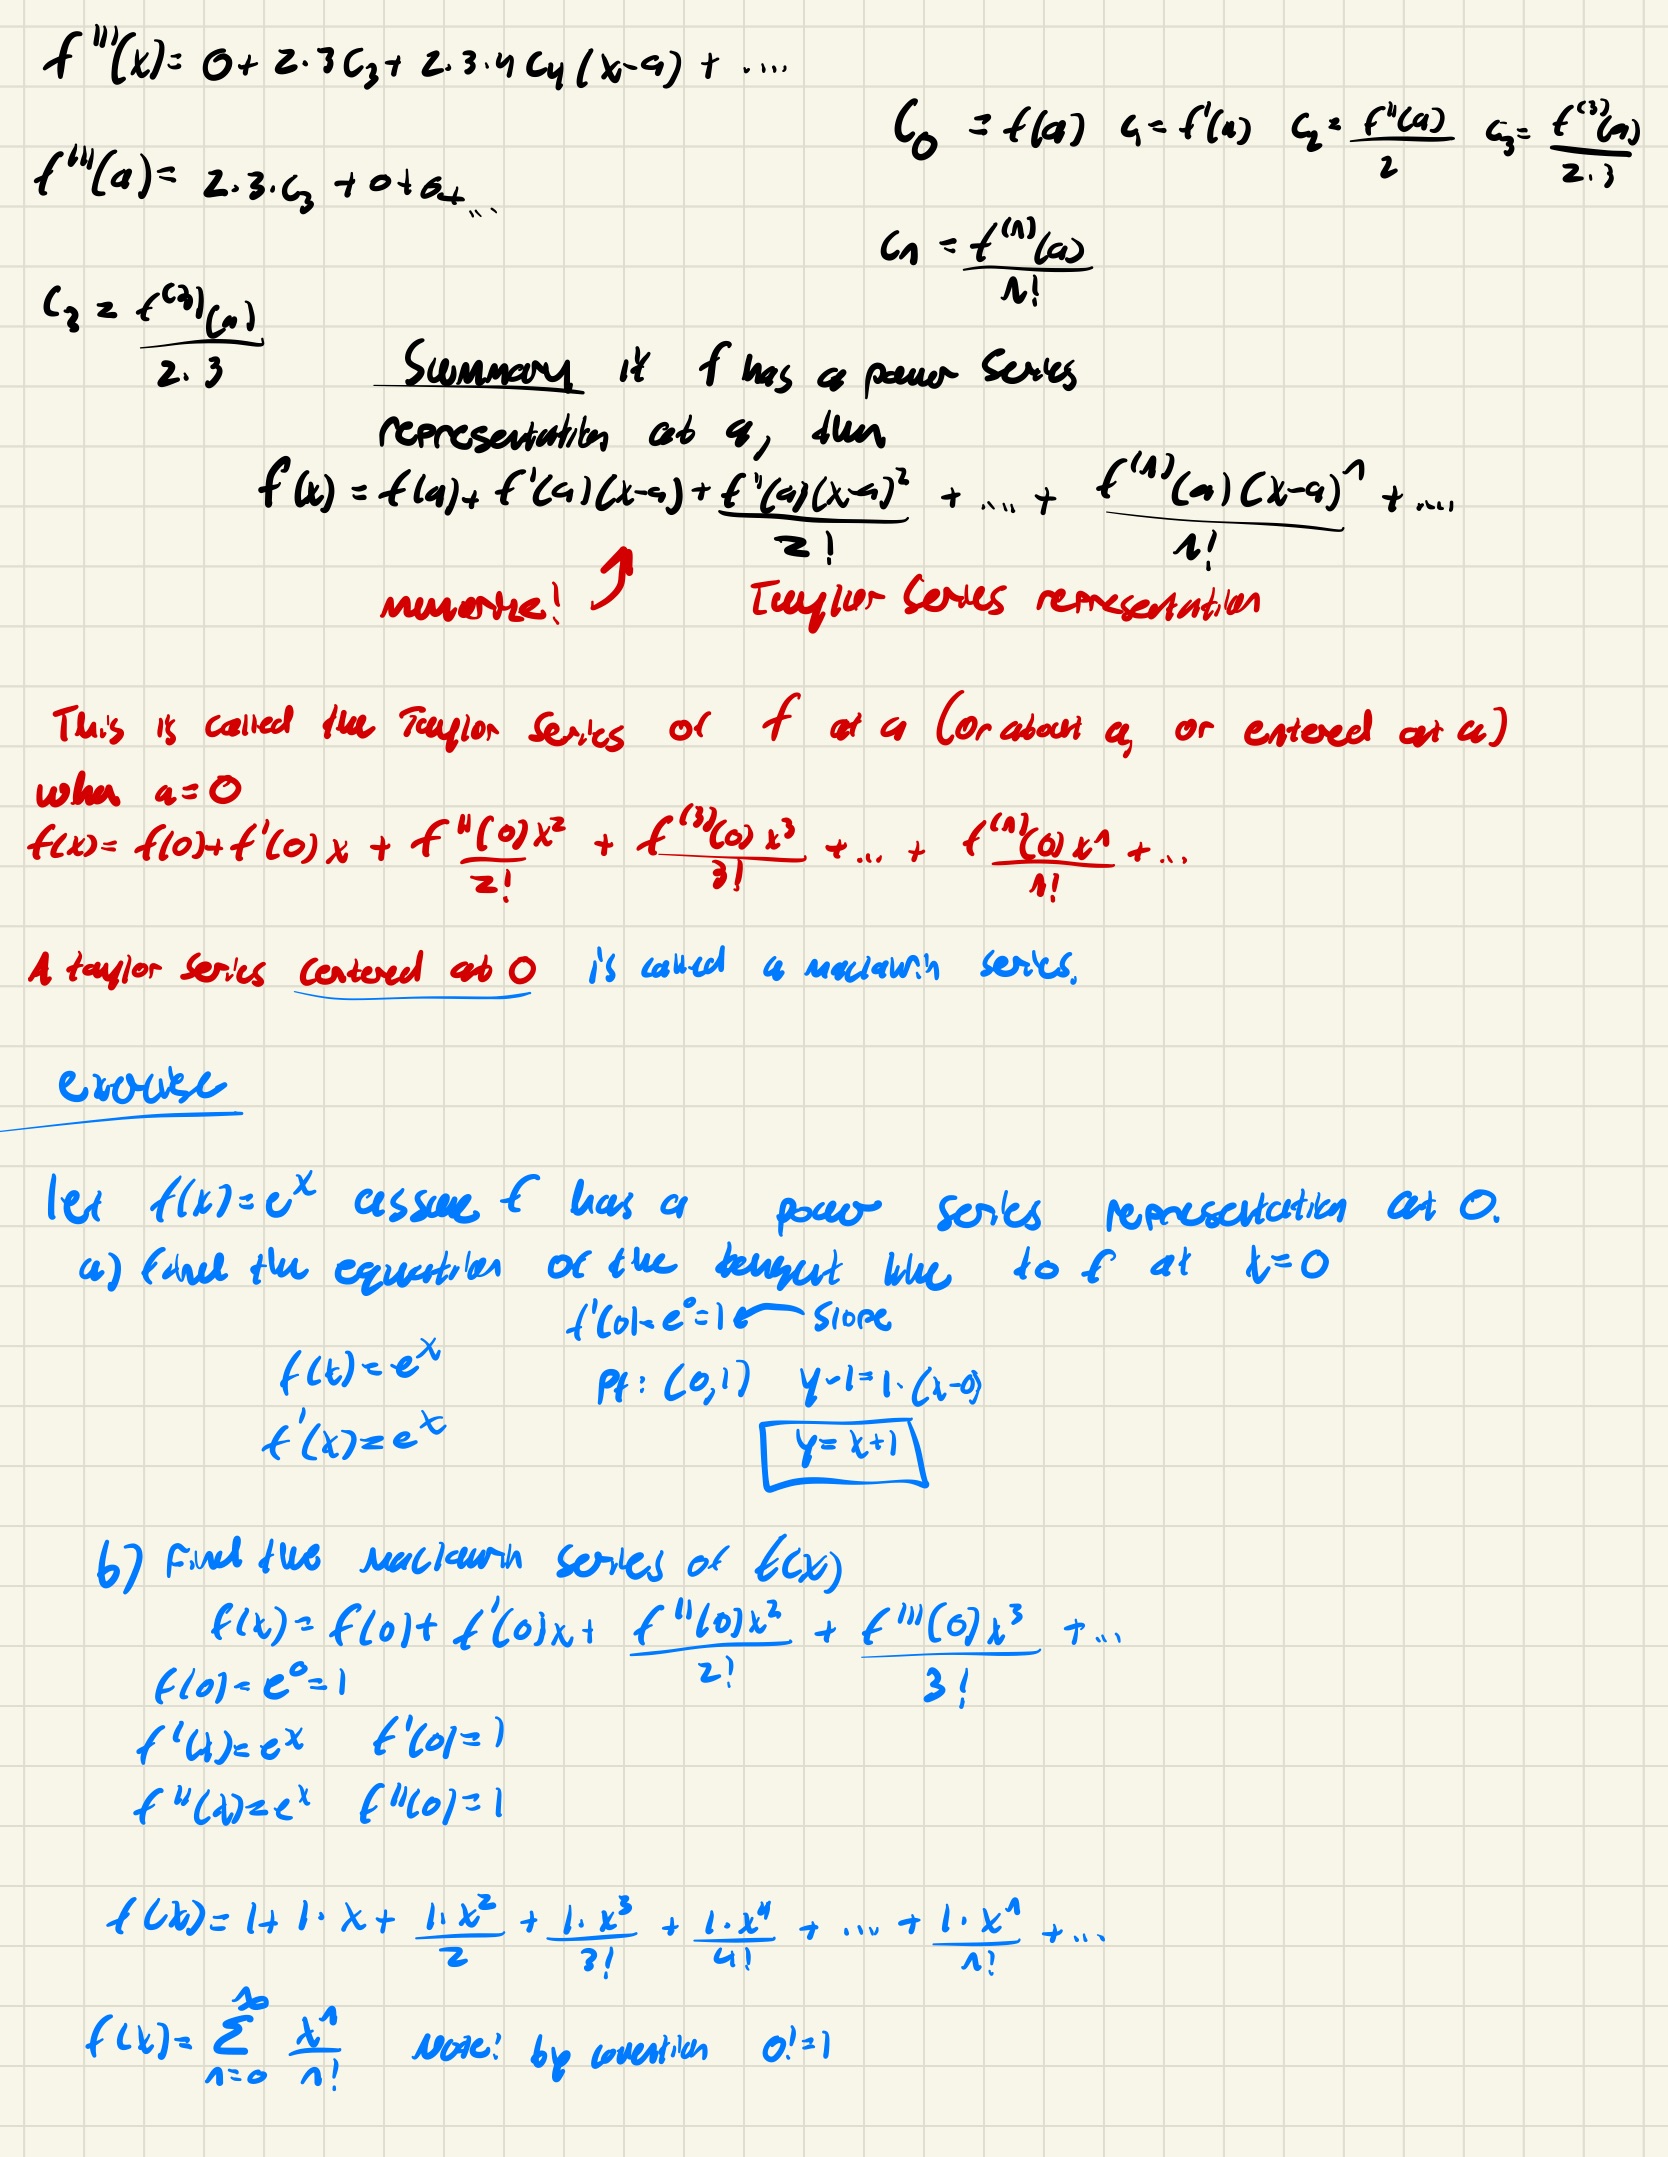 f'''(x) = 0 + 2·3 C₃ + 2·3·4 C₄ (x-a) + ....
C₀ = f(a) C₁ = f'(a) C₂ = f''(a)/2 C₃ = f⁽³⁾(a)/2·3
f'''(a) = 2·3·C₃ + 0 + 0 + ...
Cn = f⁽ⁿ⁾(a)/n!
C₃ = f⁽³⁾(a)/2·3
Summary if f has a power series
representation at a, then
f(x) = f(a) + f'(a)(x-a) + f''(a)(x-a)²/2! + .... + f⁽ⁿ⁾(a)(x-a)ⁿ/n! + ....
memorize! Taylor Series representation
This is called the Taylor Series of f at a (or about a, or entered at a)
when a=0
f(x) = f(0) + f'(0)x + f''(0)x²/2! + f⁽³⁾(0)x³/3! + ... + f⁽ⁿ⁾(0)xⁿ/n! + ...
A taylor series centered at 0 is called a maclaurin series.
exercise
let f(x) = eˣ assume f has a power series representation at 0.
a) find the equation of the tangent line to f at x=0
f'(0) = e⁰ = 1 ← slope
f(x) = eˣ pt: (0,1) y-1 = 1·(x-0)
f'(x) = eˣ y = x+1
b) Find the maclaurin series of f(x)
f(x) = f(0) + f'(0)x + f''(0)x²/2! + f'''(0)x³/3! + ...
f(0) = e⁰ = 1
f'(x) = eˣ f'(0) = 1
f''(x) = eˣ f''(0) = 1
f(x) = 1 + 1·x + 1·x²/2 + 1·x³/3! + 1·x⁴/4! + ... + 1·xⁿ/n! + ...
f(x) = Σ n=0 ∞ xⁿ/n! Note! by convention 0! = 1